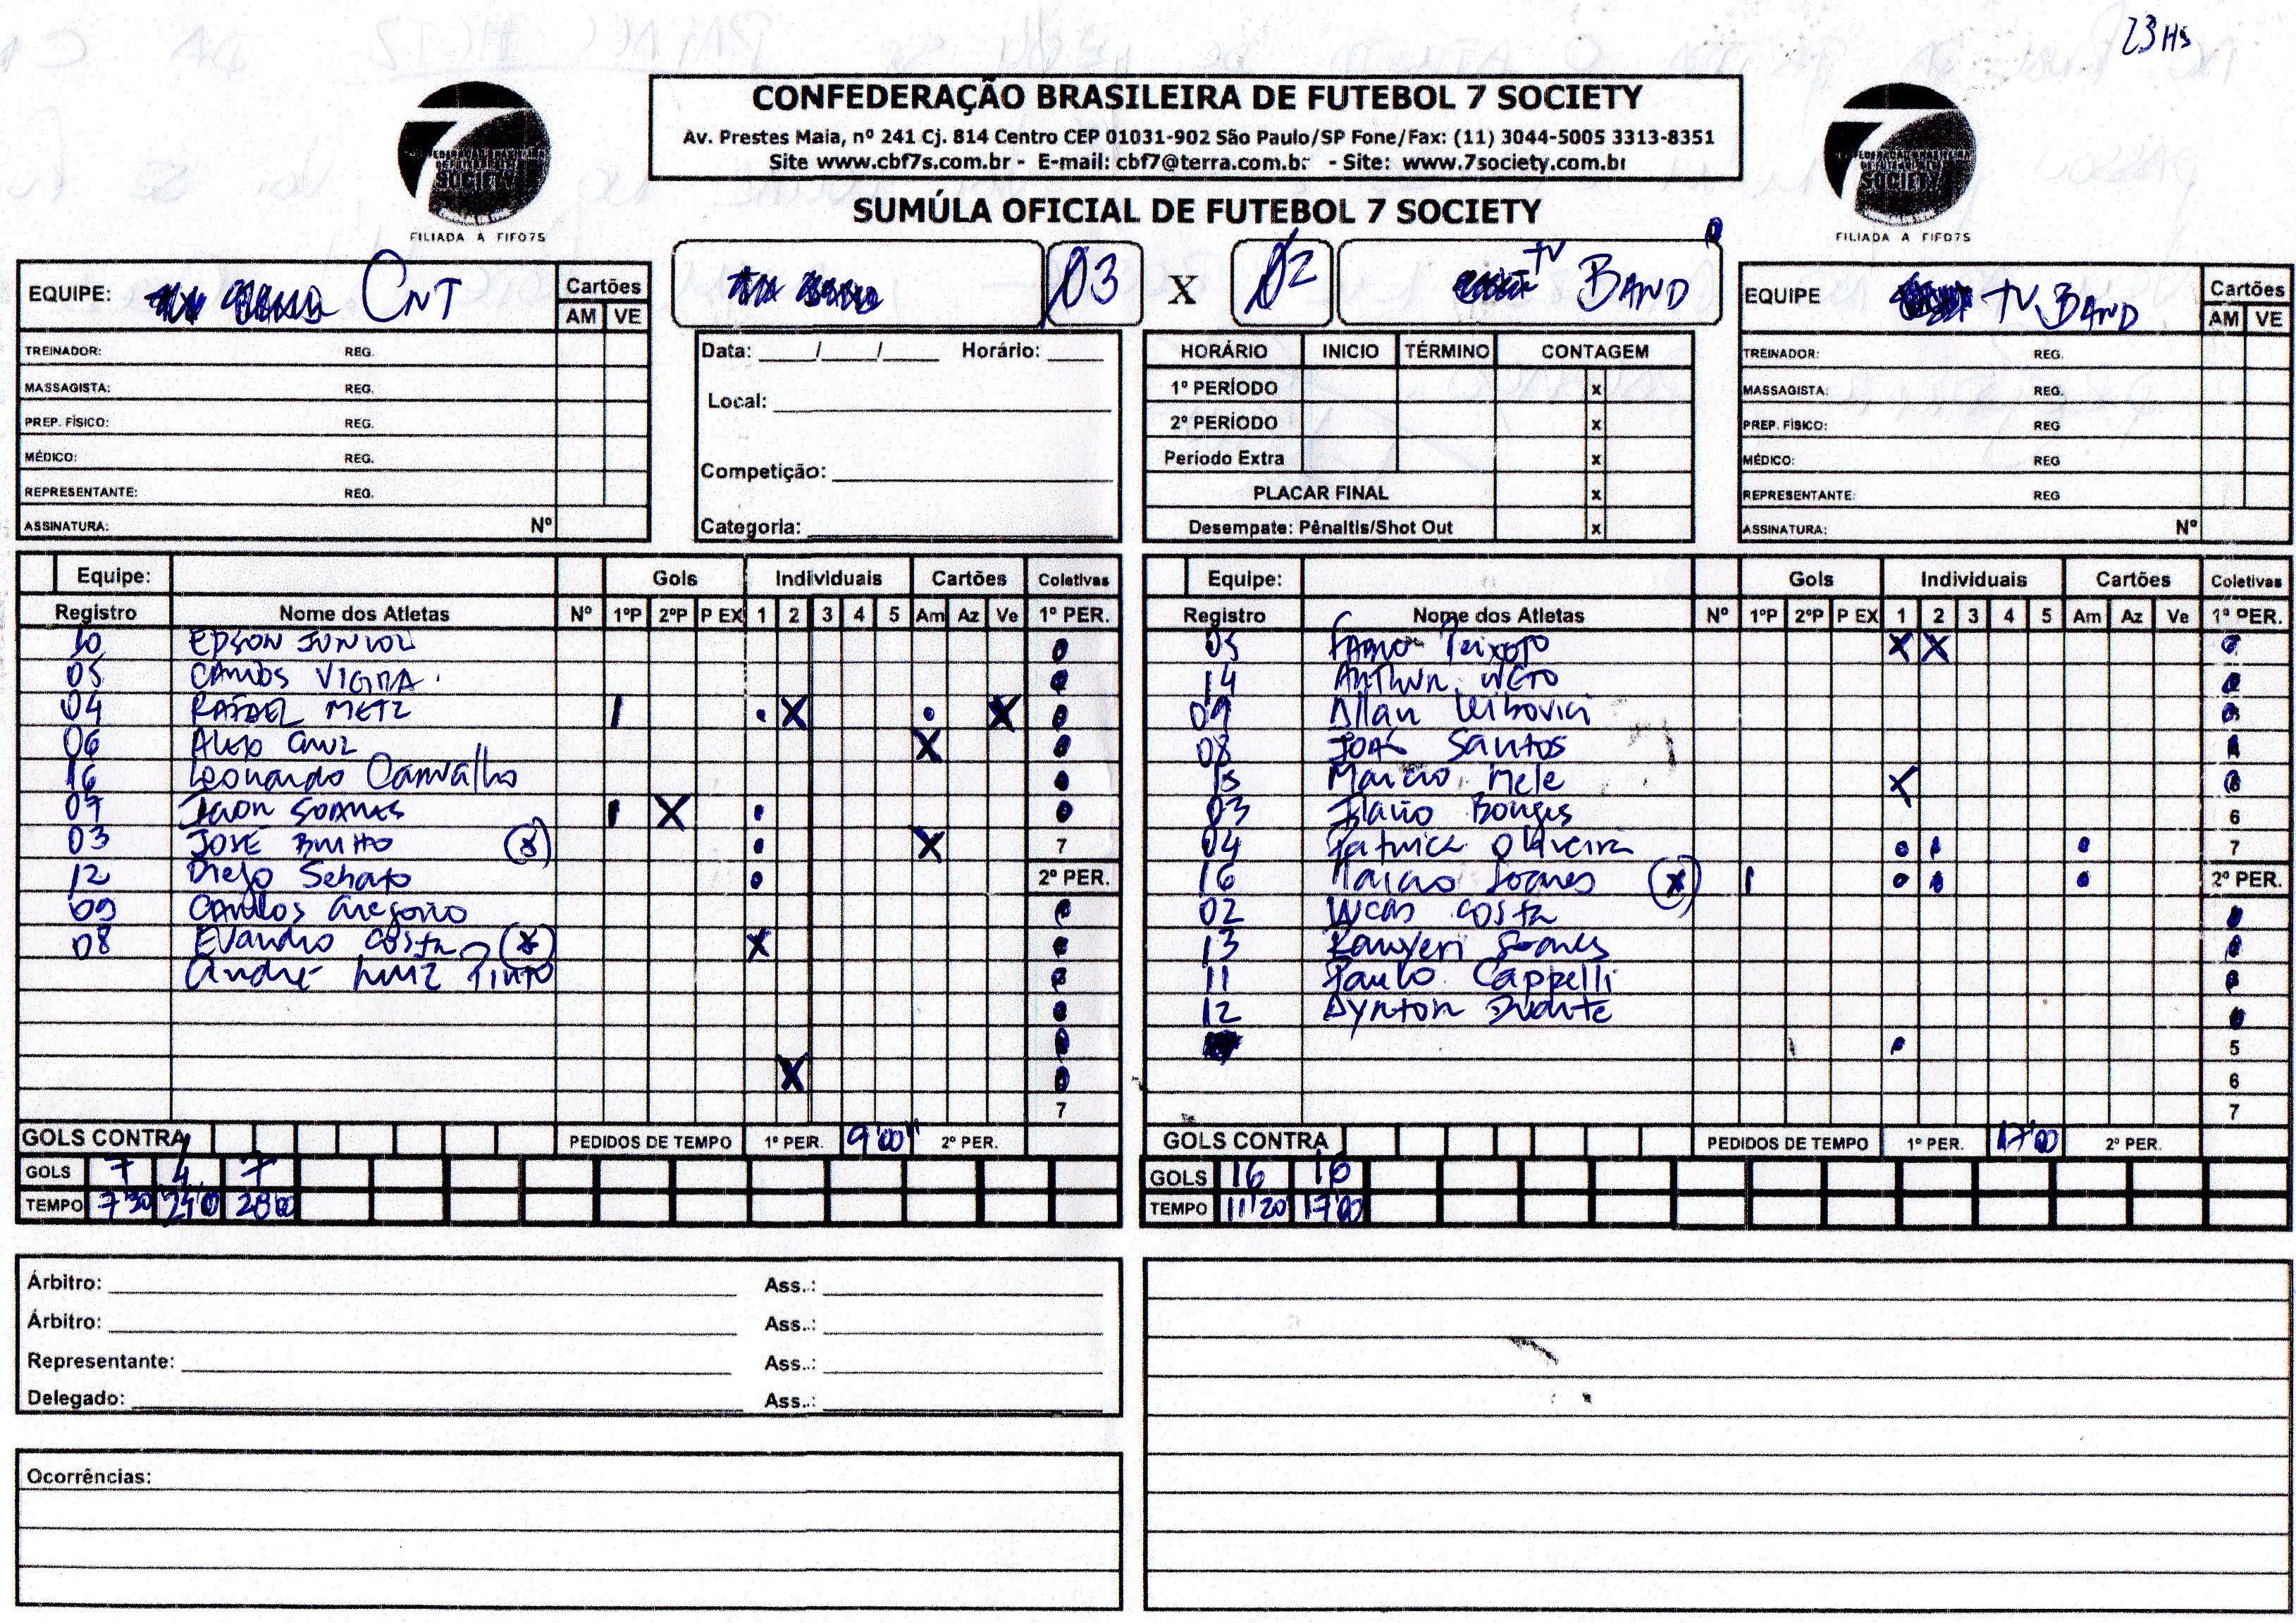 23 Hs
CONFEDERAÇÃO BRASILEIRA DE FUTEBOL 7 SOCIETY
Av. Prestes Maia, nº 241 Cj. 814 Centro CEP 01031-902 São Paulo/SP Fone/Fax: (11) 3044-5005 3313-8351
Site www.cbf7s.com.br - E-mail: cbf7@terra.com.br - Site: www.7society.com.br
SUMÚLA OFICIAL DE FUTEBOL 7 SOCIETY
SOCIETY
FILIADA A FIFO7S
SOCIETY
FILIADA A FIFO7S
03 X 02 TV BAND
EQUIPE: CNT Cartões
AM VE
TREINADOR: REG.
MASSAGISTA: REG.
PREP. FÍSICO: REG.
MÉDICO: REG.
REPRESENTANTE: REG.
ASSINATURA: Nº
Data: ____/____/____ Horário: ____
Local:
Competição:
Categoria:
HORÁRIO INICIO TÉRMINO CONTAGEM
1º PERÍODO x
2º PERÍODO x
Período Extra x
PLACAR FINAL x
Desempate: Pênaltis/Shot Out x
EQUIPE TV BAND Cartões
AM VE
TREINADOR: REG.
MASSAGISTA: REG.
PREP. FÍSICO: REG
MÉDICO: REG
REPRESENTANTE: REG
ASSINATURA: Nº
Equipe: Gols Individuais Cartões Coletivas
Registro Nome dos Atletas Nº 1ºP 2ºP P EX 1 2 3 4 5 Am Az Ve 1º PER.
10 EDSON JUNIOR
05 CARLOS VIEIRA
04 RAFAEL METZ X X
06 ALEJO CRUZ X
16 Leonardo Carvalho
07 Soares X
03 JOSÉ BRITTO (x) X 7
12 Diego 2º PER.
09 CARLOS Gregorio
08 Evandro Costa (x) X
André Luiz Pinto
X
7
GOLS CONTRA PEDIDOS DE TEMPO 1º PER. 9'00" 2º PER.
GOLS 7 4 7
TEMPO 7'30 24'0 28'00
Equipe: Gols Individuais Cartões Coletivas
Registro Nome dos Atletas Nº 1ºP 2ºP P EX 1 2 3 4 5 Am Az Ve 1º PER.
05 FABIO Peixoto X X
14 ARTHUR NETO
09 Allan Leibovici
08 Santos
15 Marcio Mele X
03 Flavio Borges 6
04 Patrick Oliveira 7
16 Marcio Soares (x) 2º PER.
02 Lucas Costa
13 Soares
11 Paulo Cappelli
12 Aynton Duarte
5
6
7
GOLS CONTRA PEDIDOS DE TEMPO 1º PER. 17'00 2º PER.
GOLS 16 16
TEMPO 11'20 17'00
Árbitro: Ass.:
Árbitro: Ass.:
Representante: Ass.:
Delegado: Ass.:
Ocorrências: